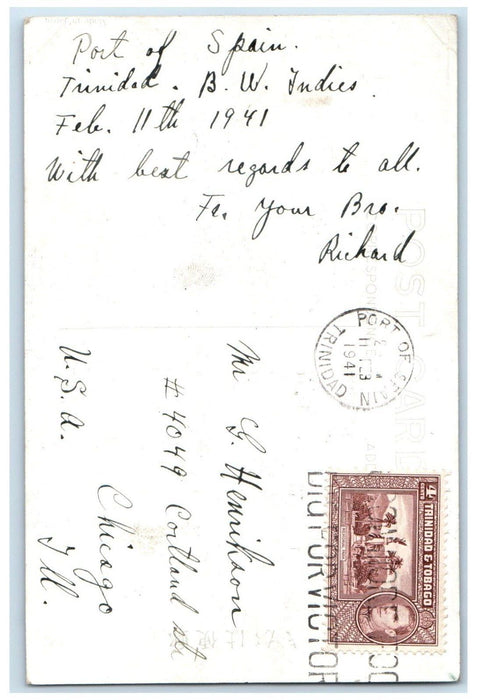 Port of Spain.
Trinidad. B. W. Indies.
Feb. 11th 1941
With best regards to all.
Your Bro.
Richard
POST CARD
PORT OF SPAIN
1941
TRINIDAD
Mr G. Henrikson
# 4049 Cortland str
Chicago
Ill.
U. S. A.
TRINIDAD & TOBAGO
4
DIG FOR VICTOR